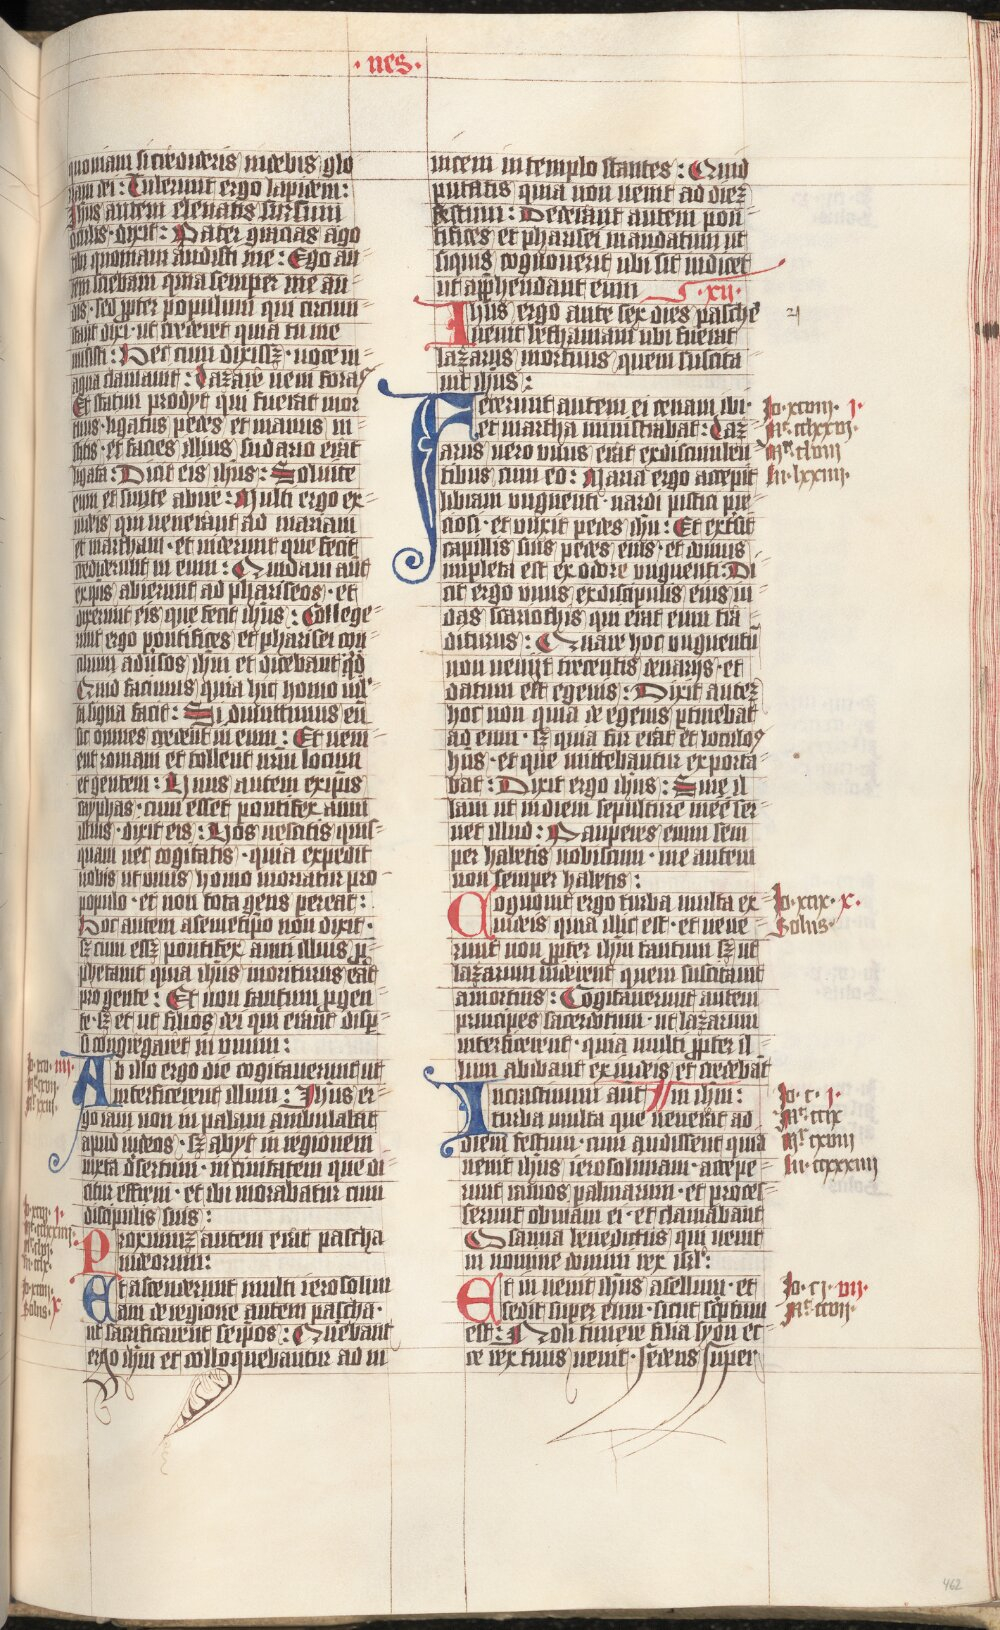 ·nes·
quoniam si credideris videbis glo
riam dei : Tulerunt ergo lapidem :
Ihus autem elevatis sursum
oculis · dixit : Pater gracias ago
tibi quoniam audisti me : Ego au
tem sciebam quia semper me au
dis · sed ppter populum qui circum
stant dixi · ut credent quia tu me
misisti : Hec cum dixissz · voce m
agna clamavit : Lazare veni foras
Et statim prodijt qui fuerat mor
tuus · ligatus pedes et manus in
stitis · et facies illius sudario erat
ligata : Dicit eis ihus : Solvite
eum et sinite abire : Multi ergo ex
iudeis qui venerant ad mariam
et martham · et viderunt que fecit
crediderunt in eum : Quidam aut
ex ipis abierunt ad phariseos · et
dixerunt eis que fecit ihus : College
runt ergo pontifices et pharisei con
cilium adusos ihm et dicebant qd
Quid facimus quia hic homo ml
ta signa facit : Si dimittimus eu
sic omnes credent in eum : Et veni
ent romani et tollent nrm locum
et gentem : Unus autem ex ipis
cayphas · cum esset pontifex anni
illius · dixit eis : Vos nescitis quic
quam nec cogitatis · quia expedit
vobis ut unus homo moriatur pro
populo · et non tota gens pereat :
Hoc autem asemetipo non dixit ·
sz cum essz pontifex anni illius p
phetavit quia ihus moriturus eat
pro gente : Et non tantum p gen
te · sz et ut filios dei qui erant disp
si congregaret in unum :
Ab illo ergo die cogitaverunt ut
interficerent illum : Ihus er
go iam non in palam ambulabat
apud iudeos · sz abijt in regionem
iuxta desertum · in civitatem que di
citur effrem · et ibi morabatur cum
discipulis suis :
Proximuz autem erat pascha
iudeorum :
Et ascenderunt multi ierosolim
am de regione autem pascha ·
ut sacrificarent seipos : Querebant
ergo ihm et colloquebantur ad in
vicem in templo stantes : Quid
putatis quia non venit ad diez
festum : Dederant autem pon
tifices et pharisei mandatum ut
siquis cognoverit ubi sit indicet
ut apphendant eum · xii ·
Ihus ergo ante sex dies pasche
venit bethaniam ubi fuerat
lazarus mortuus quem suscita
vit ihus :
Fecerunt autem ei cenam ibi ·
et martha ministrabat : Laz
arus vero unus erat ex discumben
tibus cum eo : Maria ergo accepit
libram unguenti · nardi pistici pre
ciosi · et unxit pedes ihu : Et extsit
capillis suis pedes eius · et domus
impleta est ex odore unguenti : Di
cit ergo unus ex discipulis eius iu
das scariothis qui erat eum tra
diturus : Quare hoc unguentu
non veniit trecentis denarijs · et
datum est egenis : Dixit autez
hoc non quia de egenis ptinebat
ad eum · sz quia fur erat et loculos
hns · et que mittebantur exporta
bat : Dixit ergo ihus : Sine il
lam ut in diem sepulture mee ser
vet illud : Pauperes enim sem
per habetis vobiscum · me autem
non semper habetis :
Cognovit ergo turba multa ex
iudeis quia illic est · et vene
runt non ppter ihm tantum sz ut
lazarum viderent quem suscitavit
amortuis : Cogitaverunt autem
principes sacerdotum · ut lazarum
interficerent · quia multi ppter il
lum abibant ex iudeis et credebat
In crastinum aut in ihm :
turba multa que venerat ad
diem festum · cum audissent quia
venit ihus ierosolimam · accepe
runt ramos palmarum · et proces
serunt obviam ei · et clamabant
Osanna benedictus qui venit
in nomine domini rex isrl :
Et in venit ihus asellum · et
sedit super eum · sicut scptum
est : Noli timere filia syon ec
ce rex tuus venit · sedens super
Io · xcviii · i ·
Mr · clviii
lu · lxxiiii ·
Io · xcix · x ·
Solus ·
Io · c · i ·
Mt · ccix
Mr · cxviii
lu · ccxxxiiii
Io · ci · vii ·
Mt · ccvii ·
462